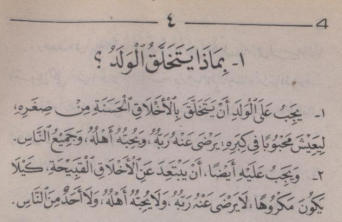 - ٤ -
4
١- بِمَاذَا يَتَخَلَّقُ الْوَلَدُ ؟
١- يَجِبُ عَلَى الْوَلَدِ أَنْ يَتَخَلَّقَ بِالْأَخْلَاقِ الْحَسَنَةِ مِنْ صِغَرِهِ،
لِيَعِيْشَ مَحْبُوْبًا فِي كِبَرِهِ: يَرْضَى عَنْهُ رَبُّهُ، وَيُحِبُّهُ أَهْلُهُ، وَجَمِيْعُ النَّاسِ.
٢- وَيَجِبُ عَلَيْهِ أَيْضًا، أَنْ يَبْتَعِدَ عَنِ الْأَخْلَاقِ الْقَبِيْحَةِ، كَيْلَا
يَكُوْنَ مَكْرُوْهًا، لَا يَرْضَى عَنْهُ رَبُّهُ، وَلَا يُحِبُّهُ أَهْلُهُ، وَلَا أَحَدٌ مِنَ النَّاسِ.